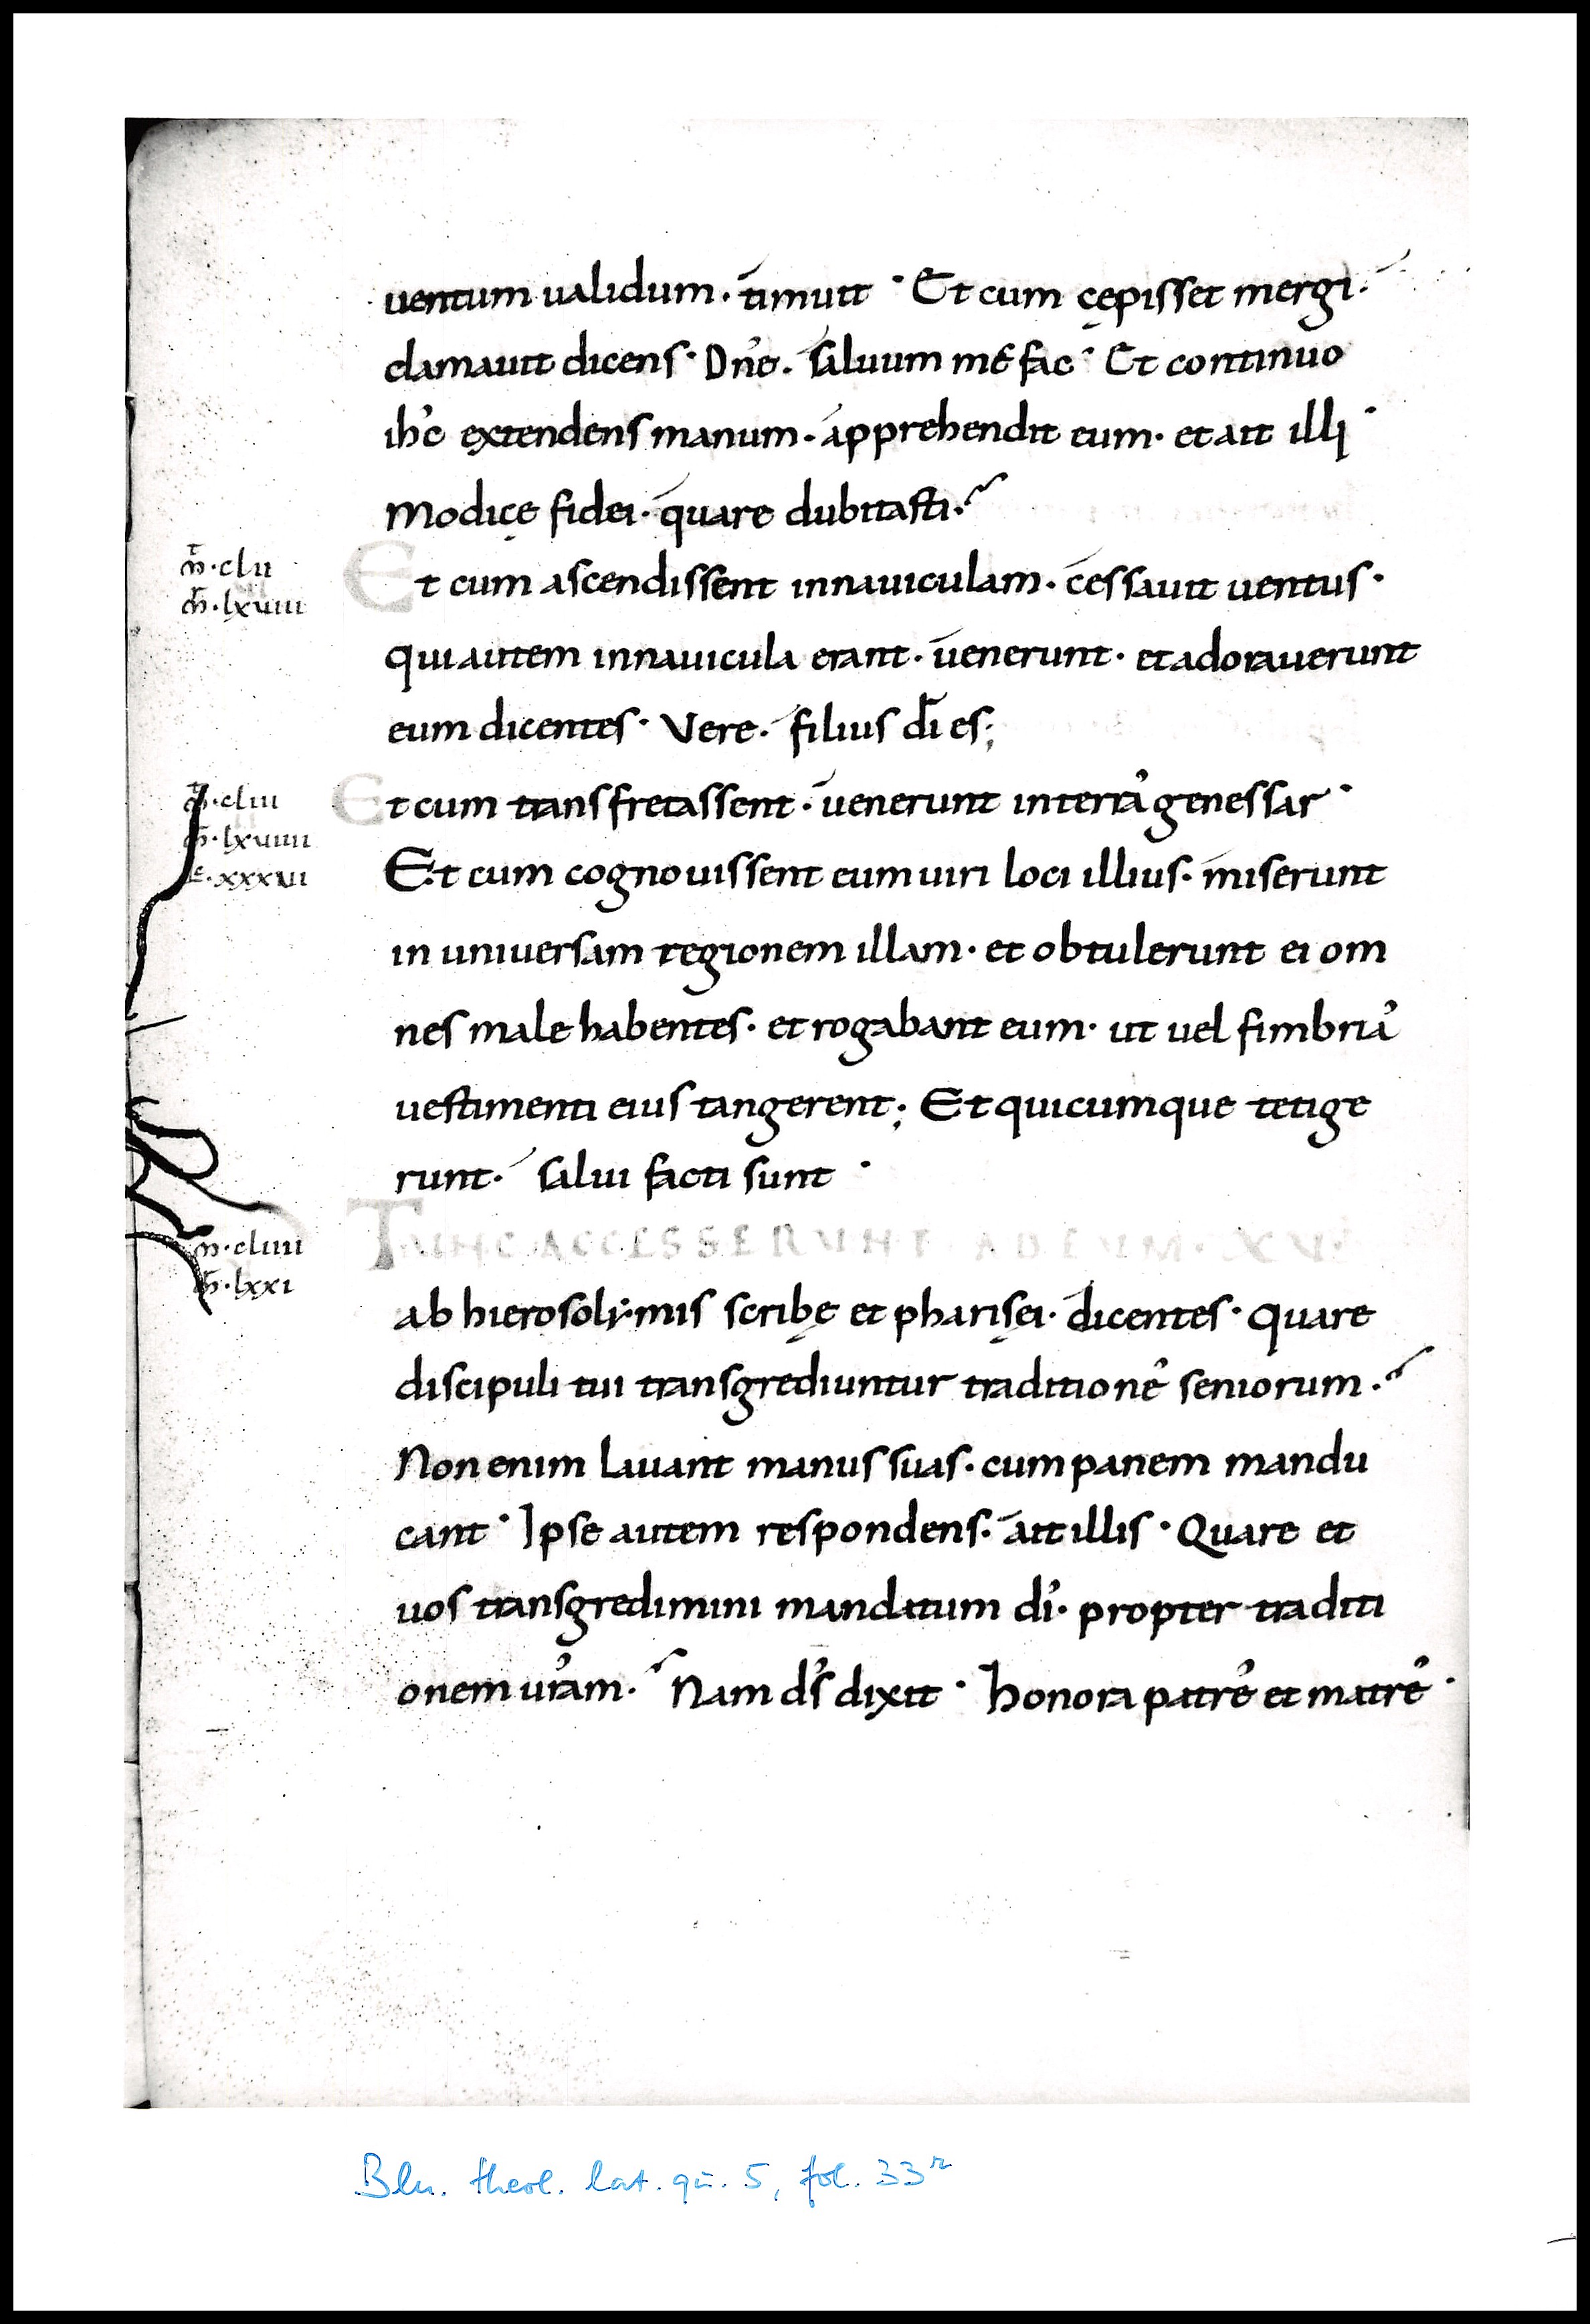 uentum ualidum. timuit · Et cum cępisset mergi.
clamauit dicens · Dn̄e. saluum me fac · Et continuo
ihc̄ extendens manum · apprehendit eum · et ait illi ·
Modicę fidei · quare dubitasti.
m̄ · clii
m̄r · lxviii
Et cum ascendissent innauiculam · cessauit uentus ·
qui autem innauicula erant · uenerunt · et adorauerunt
eum dicentes · Vere. filius dī es;
cliii
lxviiii
xxxvi
Et cum transfretassent · uenerunt interrā genessar ·
Et cum cognouissent eum uiri loci illius · miserunt
in uniuersam regionem illam · et obtulerunt ei om
nes male habentes · et rogabant eum · ut uel fimbriā
uestimenti eius tangerent; Et quicumque tetige
runt. salui facti sunt ·
m̄ · cliiii
m̄r · lxxi
TUNC ACCESSERUNT AD EUM · XV ·
ab hierosolẏmis scribę et pharisęi · dicentes · quare
discipuli tui transgrediuntur traditionē seniorum.
Non enim lauant manus suas · cum panem mandu
cant · Ipse autem respondens · ait illis · Quare et
uos transgredimini mandatum dī · propter traditi
onem ur̄am. Nam ds̄ dixit · honora patrē et matrē ·
Bln. theol. lat. qu. 5, fol. 33r